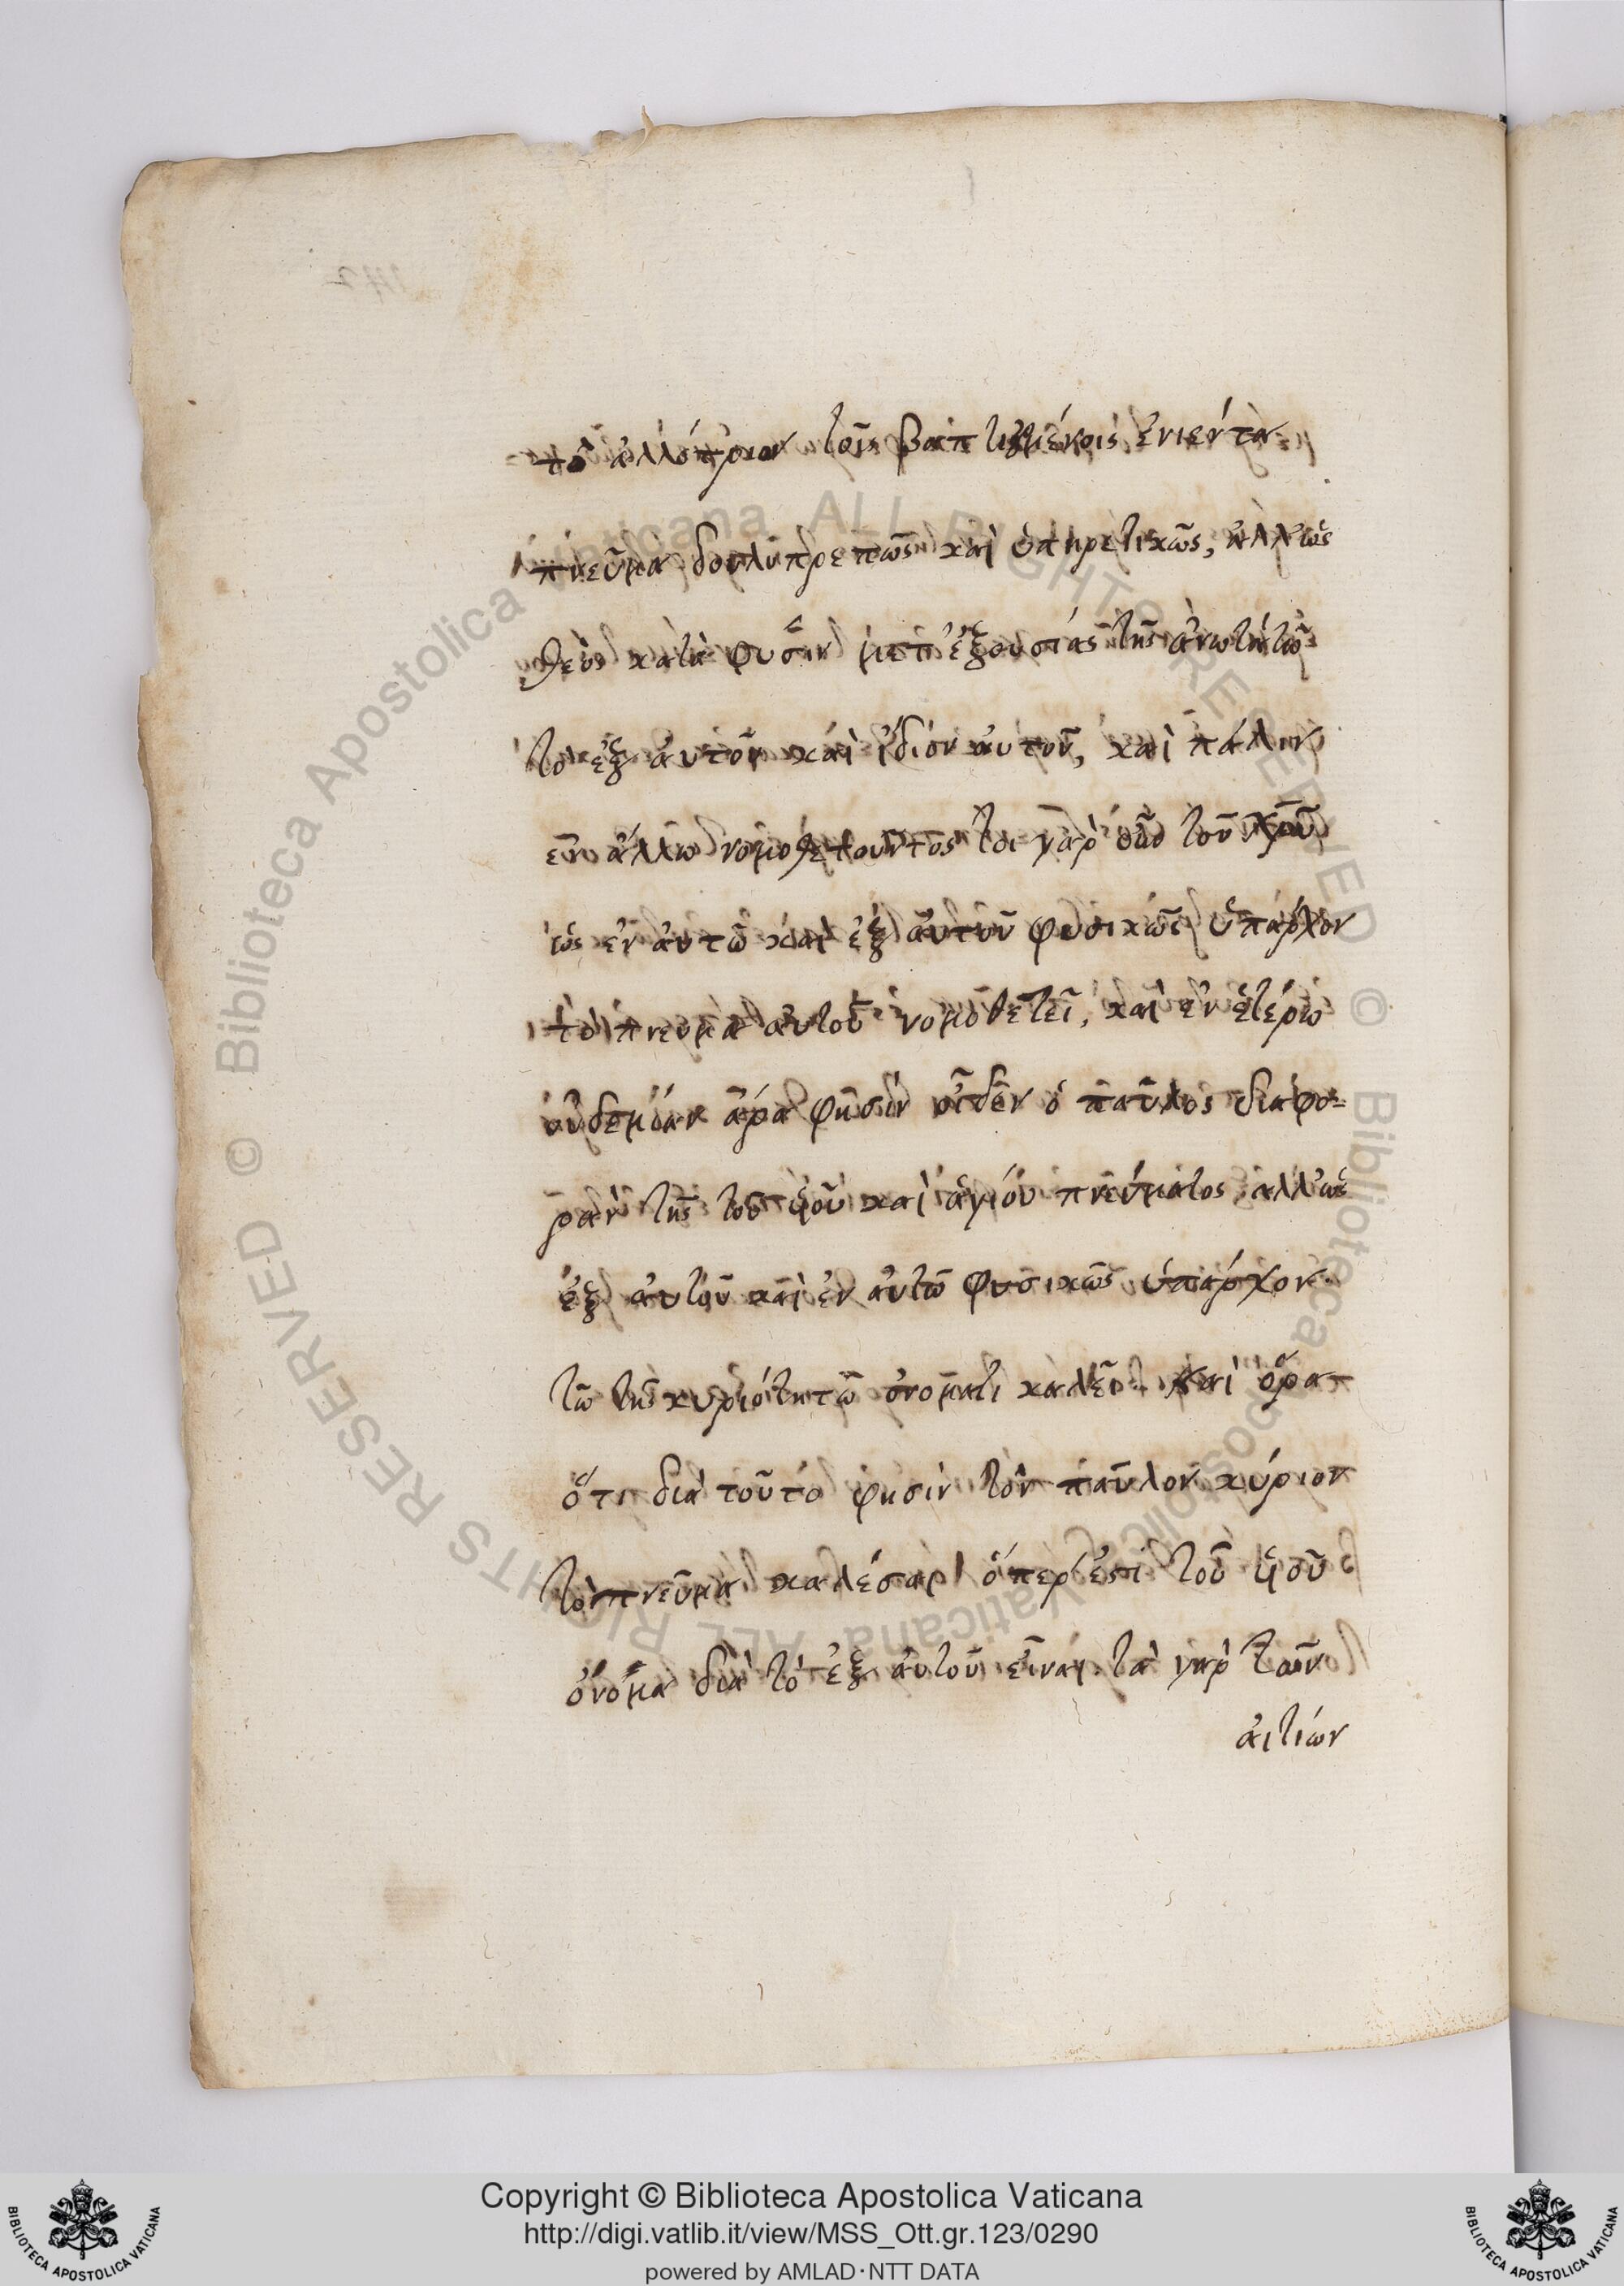 το ἀλλότριον τοῖς βαπτιζομένοις ἐνιέντα
πνεῦμα δουλοπρεπῶς καὶ ὑπηρετικῶς, ἀλλ' ὡς
θεὸν κατὰ φύσιν μετ' ἐξουσίας τῆς ἀνωτάτω
τὸ ἐξ αὐτοῦ καὶ ἴδιον αὐτοῦ, καὶ πάλιν
ἐν ἄλλω νομοθετοῦντος τοι γὰρ τοῦ
ὡς ἐν αὐτῶ καὶ ἐξ αὐτοῦ φυσικῶς ὑπάρχον
τὸ πνεῦμα αὐτοῦ νομοθετεῖ, καὶ ἐν ἑτέρω
οὐδεμίαν ἄρα φησὶν οἶδεν ὁ παῦλος διαφο=
ρὰν τῆς τοῦ υἱοῦ καὶ ἁγίου πνεύματος, ἀλλ' ὡς
ἐξ αὐτοῦ καὶ ἐν αὐτῶ φυσικῶς ὑπάρχον
τῶ τῆς κυριότητος ὀνόματι καλεῖ. καὶ ὅρα
ὅτι διὰ τοῦτο φησὶν τὸν παῦλον κύριον
τὸ πνεῦμα καλέσαι ὅπερ ἐστὶ τοῦ υἱοῦ
ὄνομα διὰ τὸ ἐξ αὐτοῦ εἶναι τὰ γὰρ τῶν
αἰτιῶν
Copyright © Biblioteca Apostolica Vaticana
http://digi.vatlib.it/view/MSS_Ott.gr.123/0290
powered by AMLAD·NTT DATA
BIBLIOTECA APOSTOLICA VATICANA
BIBLIOTECA APOSTOLICA VATICANA
© Biblioteca Apostolica Vaticana ALL RIGHTS RESERVED
© Biblioteca Apostolica Vaticana ALL RIGHTS RESERVED